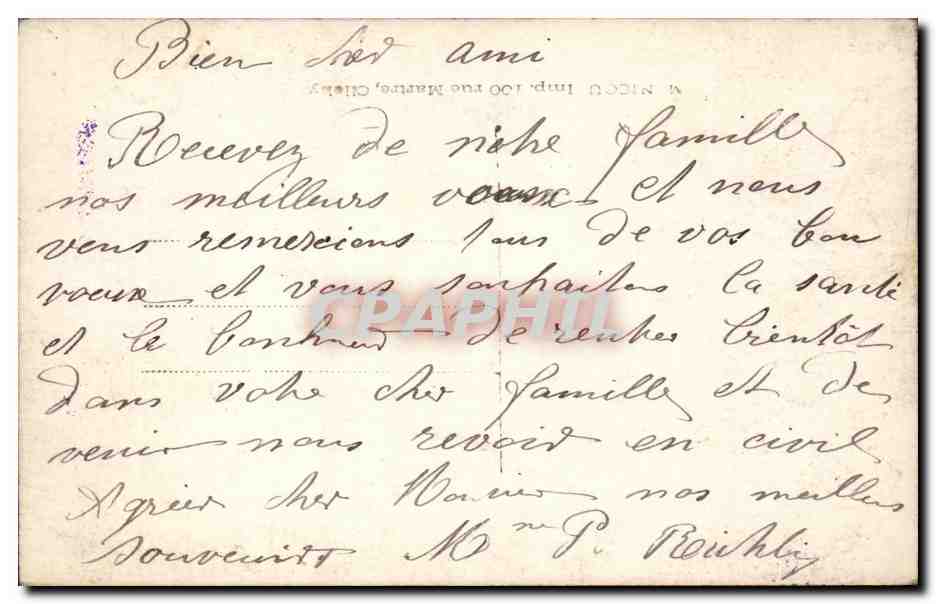 Bien cher ami
M NICOU Imp. 100 rue Martre, Clichy
Recevez de notre famille
nos meilleurs voeux et nous
vous remercions tous de vos bon
voeux et vous souhaitons la santé
et le bonheur de rentrer bientôt
dans votre cher famille et de
venir nous revoir en civil
Agréer cher Monsieur nos meilleurs
souvenirs Mme P.
CPAPHIL